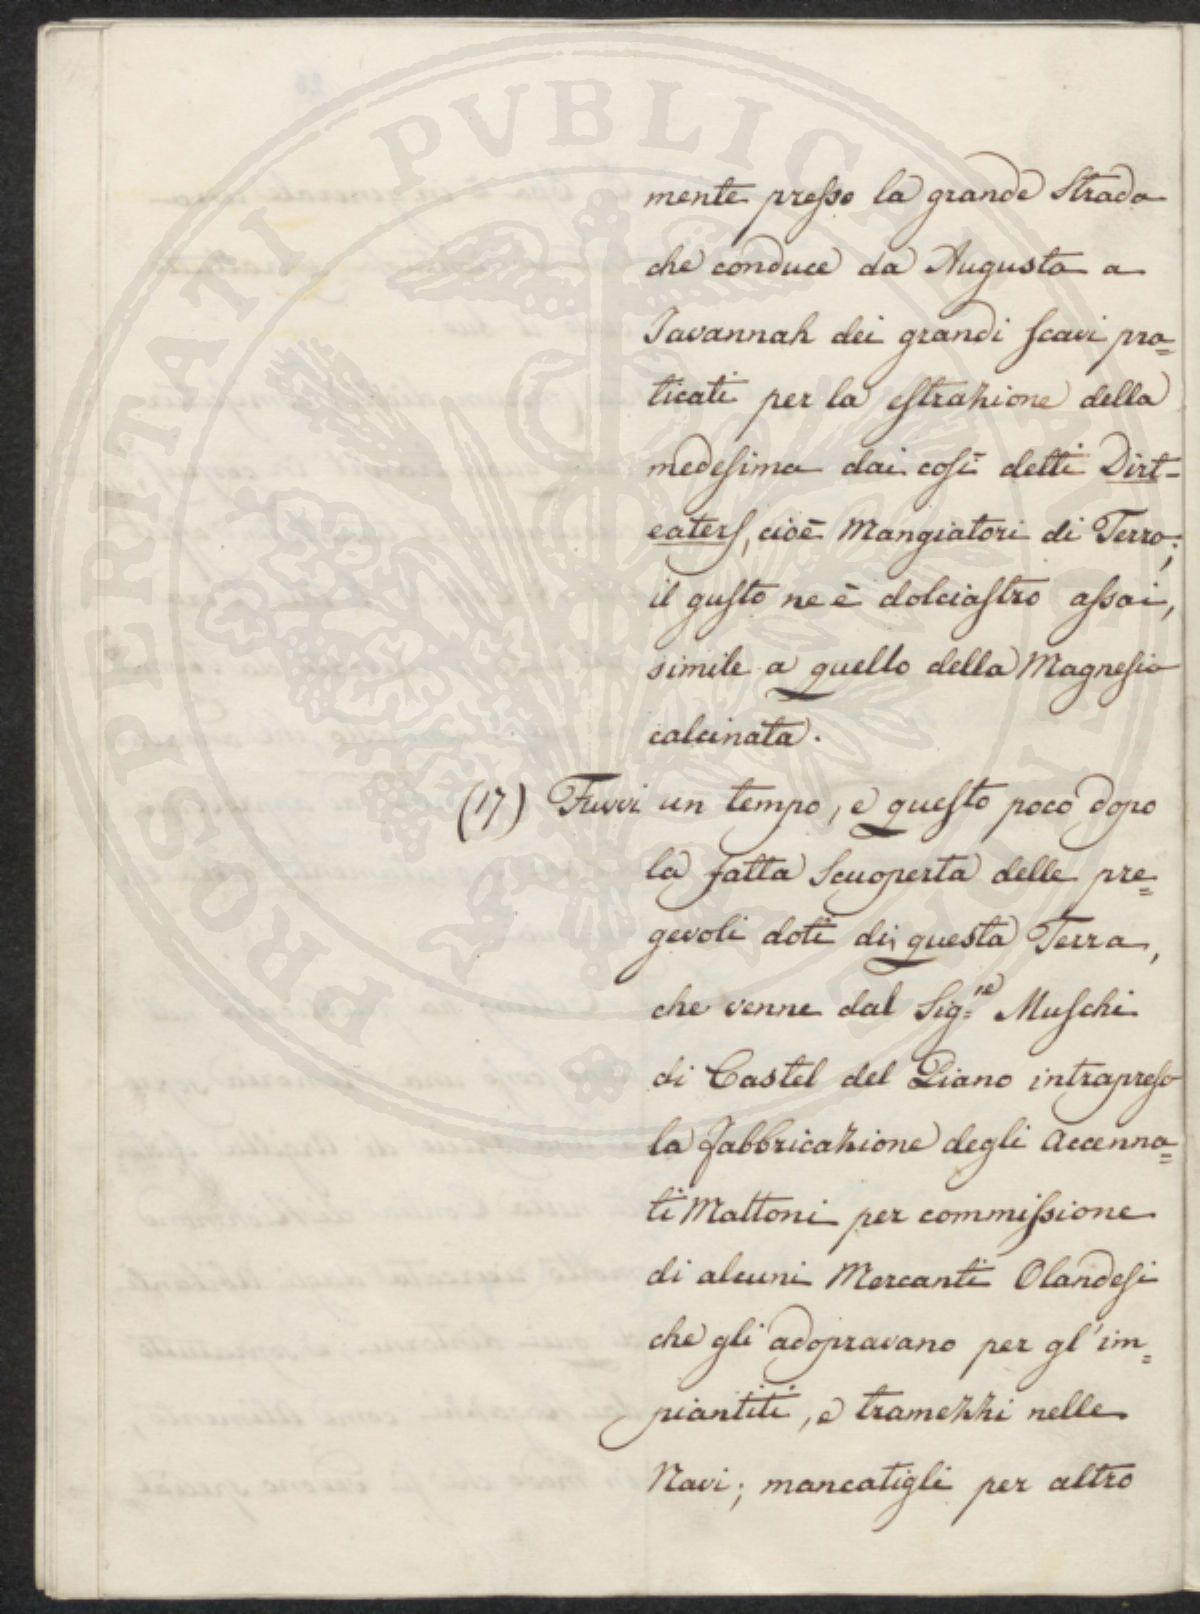 PROSPERITATI PVBLICAE AVGENDAE
mente presso la grande Strada
che conduce da Augusta a
Savannah dei grandi scavi pra=
ticati per la estrazione della
medesima dai così detti Dirt-
eaters, cioè Mangiatori di Terra;
il gusto ne è dolciastro assai,
simile a quello della Magnesia
calcinata.
(17) Fuvvi un tempo, e questo poco dopo
la fatta Scuoperta delle pre=
gevoli doti di questa Terra,
che venne dal Sig.re Muschi
di Castel del Piano intrapresa
la fabbricazione degli accenna=
ti Mattoni per commissione
di alcuni Mercanti Olandesi
che gli adopravano per gl'im=
piantiti, e tramezzi nelle
Navi; mancatigli per altro